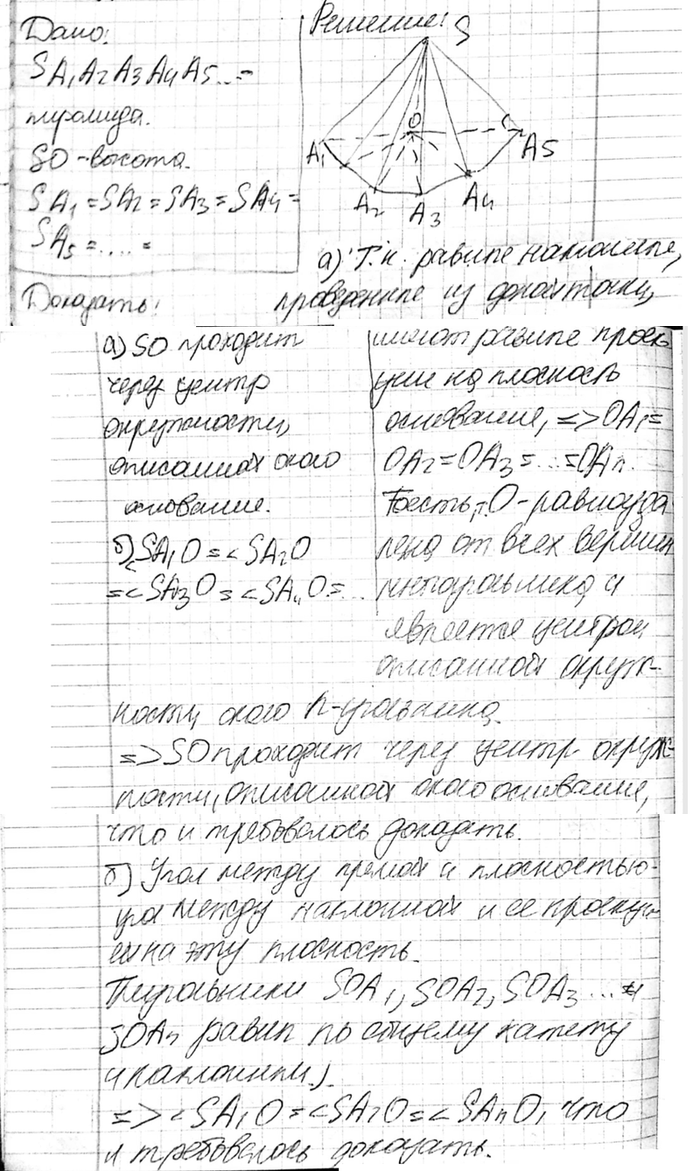 Дано:
SA1A2A3A4A5...-
пирамида.
SO-высота.
SA1=SA2=SA3=SA4=
SA5=....=
Доказать:
Решение:
S
O
A1
A2
A3
A4
A5
а) Т.к. равные наклонные,
проведенные из одной точки,
а) SO проходит
через центр
окружности,
описанной около
основания.
б) <SA1O=<SA2O
=<SA3O=<SA4O=...
имеют равные проек
ции на плоскость
основания, => OA1=
OA2=OA3=...=OAn.
Тоесть, т.O-равноуда
лена от всех вершин
многоугольника и
является центром
описанной окруж-
ности около n-угольника.
=> SO проходит через центр окруж-
ности, описанной около основания,
что и требовалось доказать.
б) Угол между прямой и плоскостью-
угол между наклонной и ее проекци-
ей на эту плоскость.
Треугольники SOA1, SOA2, SOA3 ... и
SOAn равны по общему катету
и наклонным.
=> <SA1O=<SA2O=<SAnO, что
и требовалось доказать.